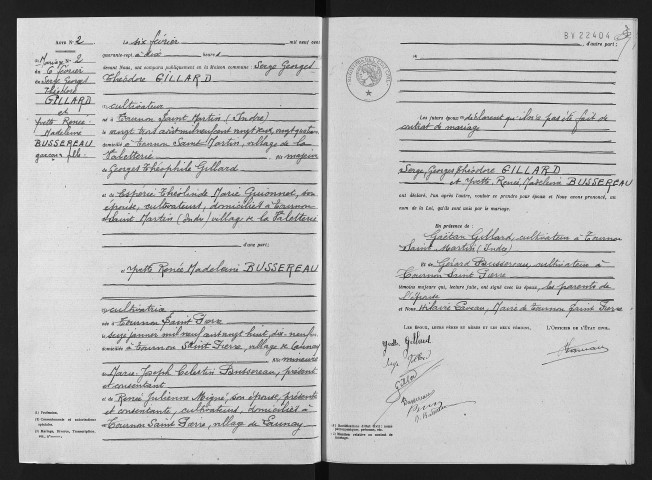 Acte N° 2
Mariage N° 2
du 6 février
Serge Georges
Théodore
GILLARD
et
Yvette Renée
Madeleine
BUSSEREAU
garçon & fille
Le six février mil neuf cent
quarante-sept, à heures
devant Nous, ont comparu publiquement en la Maison commune : Serge Georges
Théodore GILLARD
cultivateur
né à Tournon Saint Martin (Indre)
le vingt avril mil neuf cent vingt
domicilié à Tournon Saint Martin, village de la
Valetterie fils majeur
de Georges Théophile Gillard
et de Marie Guionnet, son
épouse, cultivateurs, domiciliés à Tournon
Saint Martin (Indre) village de la Valetterie
d'une part;
et Yvette Renée Madeleine BUSSEREAU
cultivatrice
née à Tournon Saint Pierre
le seize janvier mil neuf cent vingt huit, dix-neuf
domiciliée à Tournon Saint Pierre, village de Launay
fille mineure
de Marie Joseph Célestin Bussereau, présent
et consentant
et de Renée Julienne son épouse, présente
et consentante, cultivateurs, domiciliés à
Tournon Saint Pierre, village de Launay
(1) Profession.
(2) Consentements et autorisations
spéciales.
(3) Mariage, Divorce, Transcription,
etc.
BY 22404
d'autre part;
Les futurs époux déclarent qu'il n'a pas été fait de
contrat de mariage
Serge, Georges Théodore GILLARD
et Yvette, Renée, Madeleine BUSSEREAU
ont déclaré, l'un après l'autre, vouloir se prendre pour époux et Nous avons prononcé, au
nom de la Loi, qu'ils sont unis par le mariage.
En présence de
Gaëtan Gillard, cultivateur à Tournon
Saint Martin (Indre)
et de Gérard Bussereau, cultivateur à
Tournon Saint Pierre
témoins majeurs qui, lecture faite, ont signé avec les époux, les parents de
l'épouse
et Nous, Maire de Tournon Saint Pierre
LES ÉPOUX, LEURS PÈRES ET MÈRES ET LES DEUX TÉMOINS,
L'OFFICIER DE L'ÉTAT CIVIL,
Yvette Gillard
Gillard
Bussereau